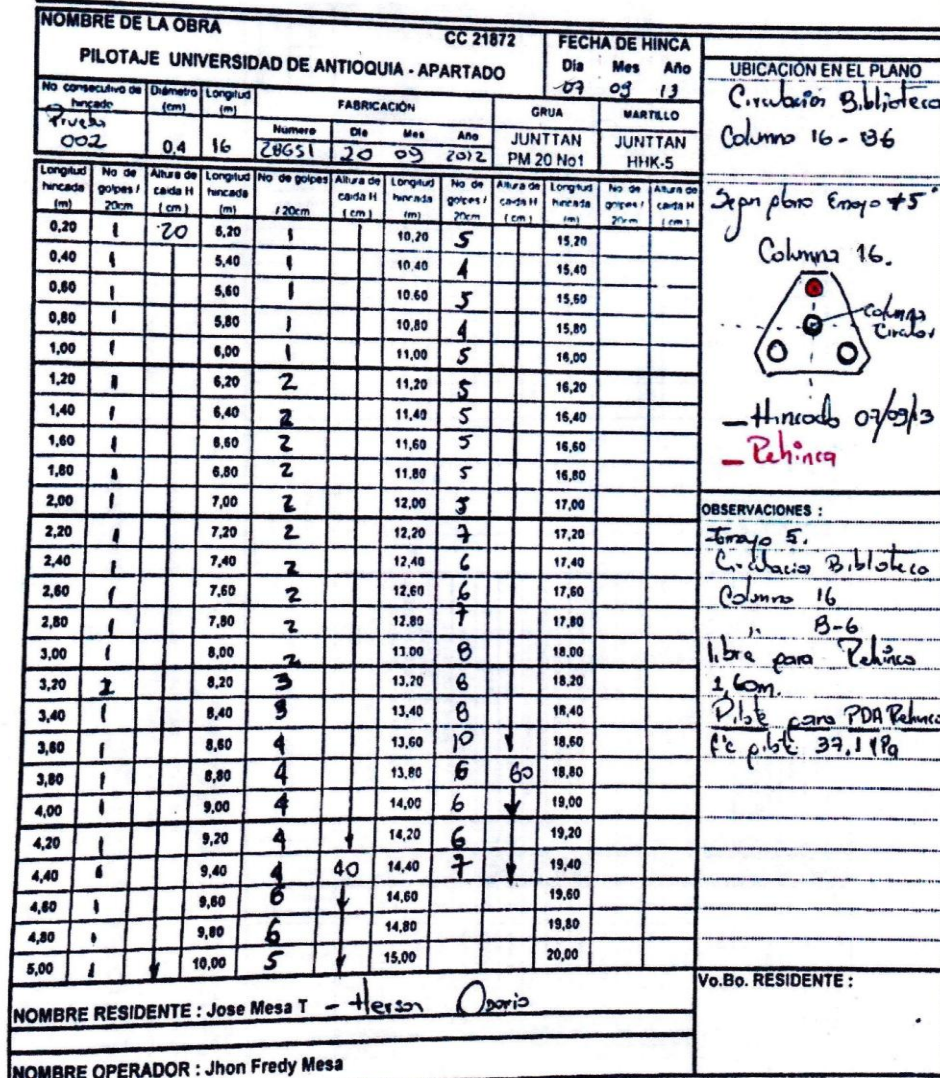 NOMBRE DE LA OBRA CC 21872
PILOTAJE UNIVERSIDAD DE ANTIOQUIA - APARTADO
FECHA DE HINCA
Dia Mes Año
07 09 13
No consecutivo de hincado Diámetro (cm) Longitud (m) FABRICACIÓN GRUA MARTILLO
Numero Dia Mes Año
002 0,4 16 20 09 2012 JUNTTAN PM 20 No1 JUNTTAN HHK-5
Longitud hincada (m) No de golpes / 20cm Altura de caida H (cm) Longitud hincada (m) No. de golpes / 20cm Altura de caida H (cm) Longitud hincada (m) No. de golpes / 20cm Altura de caida H (cm) Longitud hincada (m) No de golpes / 20cm Altura de caida H (cm)
0,20 1 20 5,20 1 10,20 5 15,20
0,40 1 5,40 1 10,40 4 15,40
0,60 1 5,60 1 10,60 5 15,60
0,80 1 5,80 1 10,80 4 15,80
1,00 1 6,00 1 11,00 5 16,00
1,20 1 6,20 2 11,20 5 16,20
1,40 1 6,40 2 11,40 5 16,40
1,60 1 6,60 2 11,60 5 16,60
1,80 1 6,80 2 11,80 5 16,80
2,00 1 7,00 2 12,00 5 17,00
2,20 1 7,20 2 12,20 7 17,20
2,40 1 7,40 2 12,40 6 17,40
2,60 1 7,60 2 12,60 6 17,60
2,80 1 7,80 2 12,80 7 17,80
3,00 1 8,00 2 13,00 8 18,00
3,20 8,20 3 13,20 18,20
3,40 1 8,40 3 13,40 8 18,40
3,60 1 8,60 4 13,60 10 18,60
3,80 1 8,80 4 13,80 6 60 18,80
4,00 1 9,00 4 14,00 6 19,00
4,20 1 9,20 4 14,20 6 19,20
4,40 1 9,40 4 40 14,40 7 19,40
4,60 1 9,60 6 14,60 19,60
4,80 1 9,80 6 14,80 19,80
5,00 1 10,00 5 15,00 20,00
NOMBRE RESIDENTE : Jose Mesa T - Herson Osorio
NOMBRE OPERADOR : Jhon Fredy Mesa
UBICACIÓN EN EL PLANO
Circulación Biblioteca
Columna 16 - B6
Segun plano Ensayo #5
Columna 16.
columna
Circular
- Hincado 07/09/13
- Rehinca
OBSERVACIONES :
Ensayo 5.
Circulacion Biblioteca
Columna 16
" B-6
libre para Rehinca
1,60m.
Pilote para PDA Rehinca
f'c pilote 37.1 MPa
Vo.Bo. RESIDENTE :